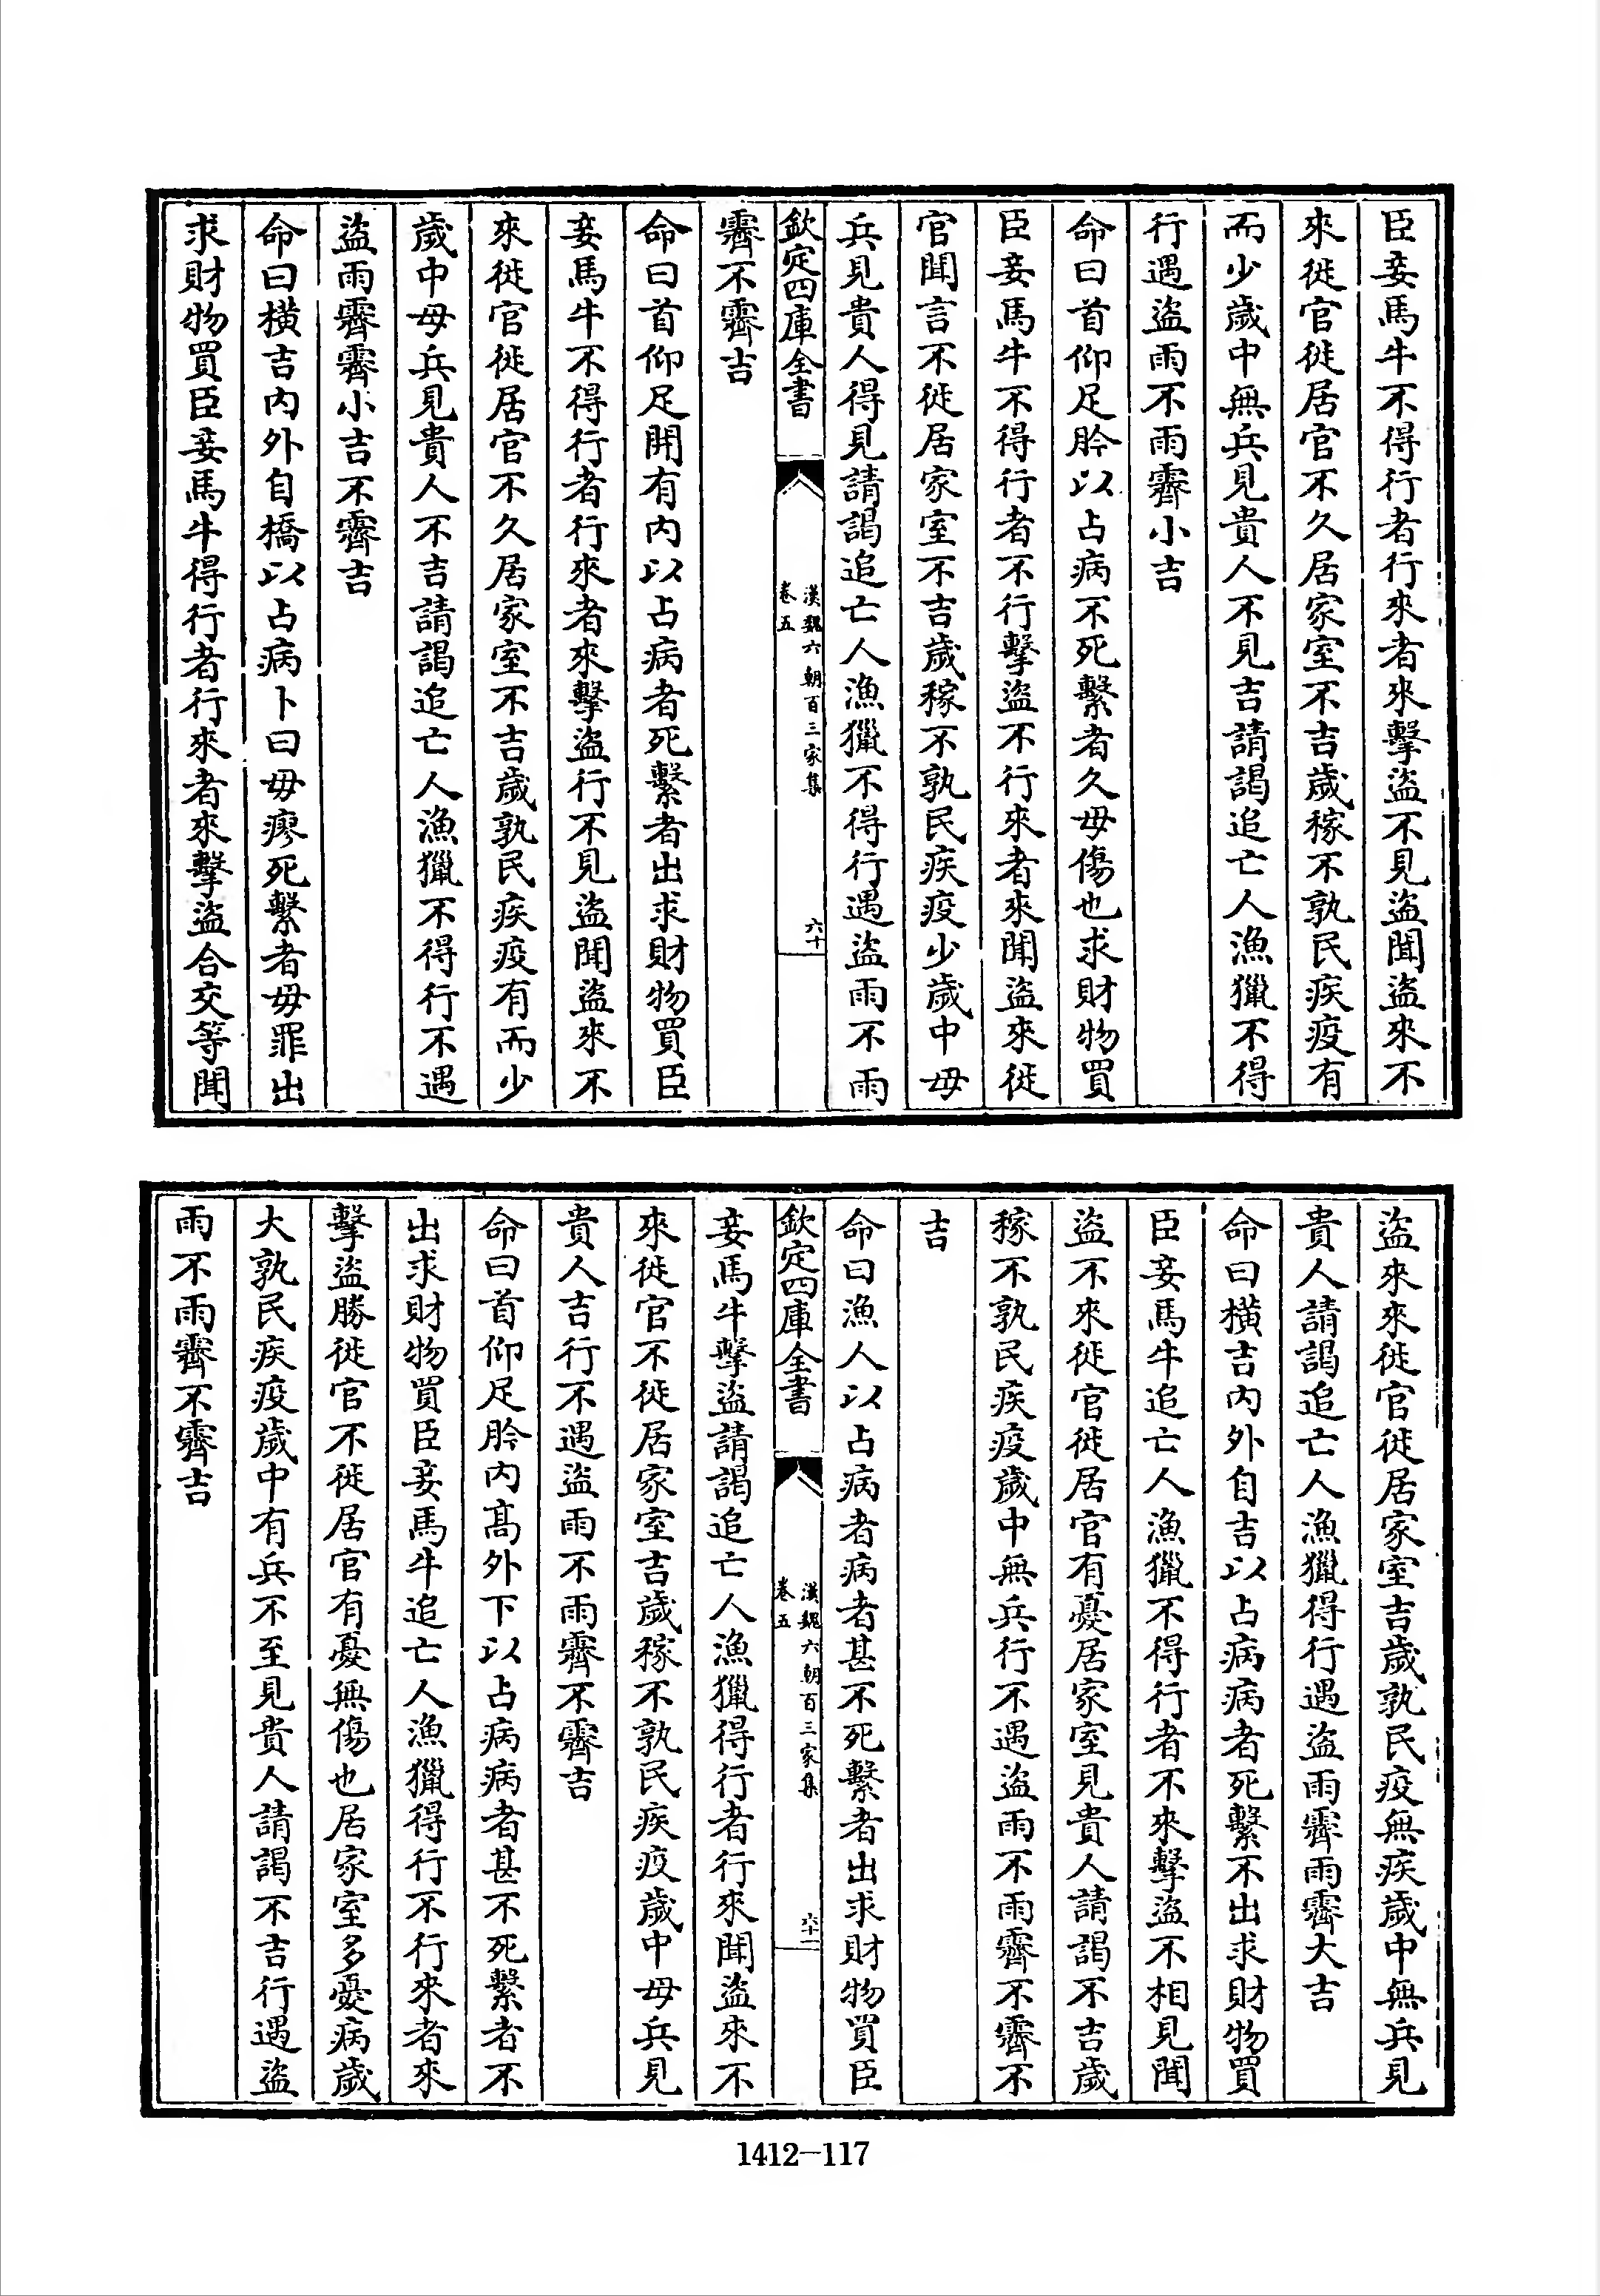 臣妾馬牛不得行者行來者來擊盜不見盜聞盜來不
來徙官徙居官不久居家室不吉歲稼不孰民疾疫有
而少歲中無兵見貴人不見吉請謁追亡人漁獵不得
行遇盜雨不雨霽小吉
命曰首仰足肣以占病不死繫者久毋傷也求財物買
臣妾馬牛不得行者不行擊盜不行來者來聞盜來徙
官聞言不徙居家室不吉歲稼不孰民疾疫少歲中毋
兵見貴人得見請謁追亡人漁獵不得行遇盜雨不雨
欽定四庫全書
漢魏六朝百三家集
卷五
六十
霽不霽吉
命曰首仰足開有內以占病者死繫者出求財物買臣
妾馬牛不得行者行來者來擊盜行不見盜聞盜來不
來徙官徙居官不久居家室不吉歲孰民疾疫有而少
歲中毋兵見貴人不吉請謁追亡人漁獵不得行不遇
盜雨霽霽小吉不霽吉
命曰橫吉內外自橋以占病卜曰毋瘳死繫者毋罪出
求財物買臣妾馬牛得行者行來者來擊盜合交等聞
盜來來徙官徙居家室吉歲孰民疫無疾歲中無兵見
貴人請謁追亡人漁獵得行遇盜雨霽雨霽大吉
命曰橫吉內外自吉以占病病者死繫不出求財物買
臣妾馬牛追亡人漁獵不得行者不來擊盜不相見聞
盜不來徙官徙居官有憂居家室見貴人請謁不吉歲
稼不孰民疾疫歲中無兵行不遇盜雨不雨霽不霽不
吉
命曰漁人以占病者病者甚不死繫者出求財物買臣
欽定四庫全書
漢魏六朝百三家集
卷五
六十一
妾馬牛擊盜請謁追亡人漁獵得行者行來聞盜來不
來徙官不徙居家室吉歲稼不孰民疾疫歲中毋兵見
貴人吉行不遇盜雨不雨霽不霽吉
命曰首仰足肣內高外下以占病病者甚不死繫者不
出求財物買臣妾馬牛追亡人漁獵得行不行來者來
擊盜勝徙官不徙居官有憂無傷也居家室多憂病歲
大孰民疾疫歲中有兵不至見貴人請謁不吉行遇盜
雨不雨霽不霽吉
1412—117